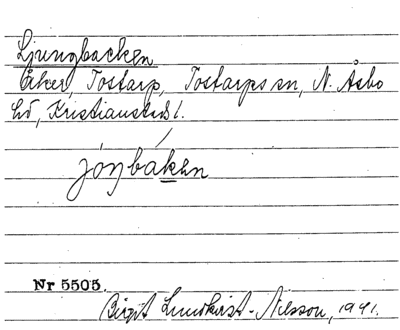 Ljungbacken
Åker, Tostarp, Tostarps sn, N. Åsbo
hd, Kristianstads l.
jóŋbáken
Nr 5505.
Birgit Lundkvist-Nilsson, 1941.